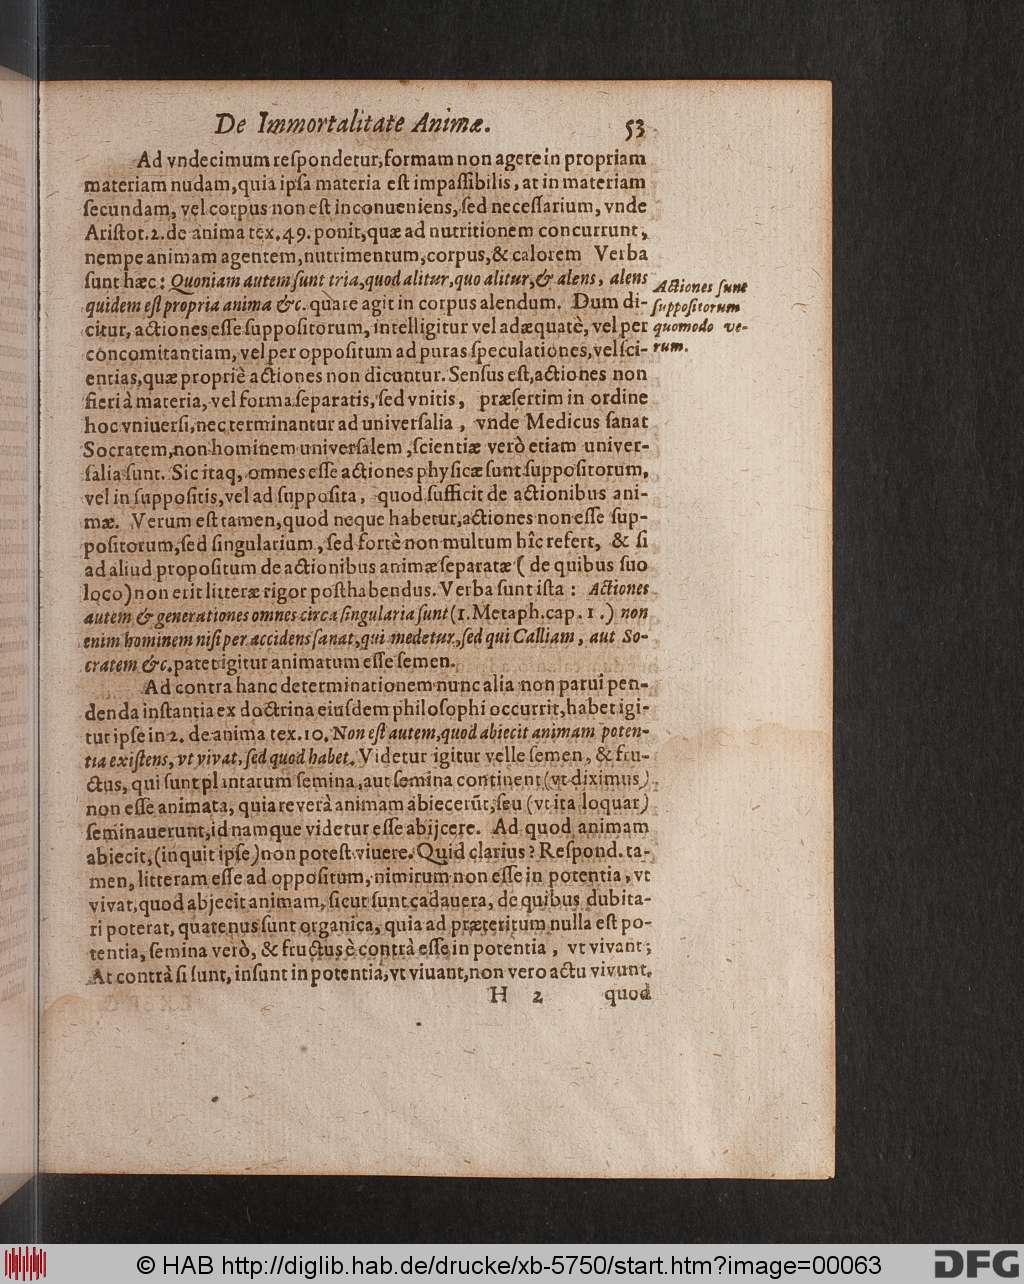 De Immortalitate Animæ. 53
Ad vndecimum reſpondetur, formam non agere in propriam
materiam nudam, quia ipſa materia eſt impaſſibilis, at in materiam
ſecundam, vel corpus non eſt inconueniens, ſed neceſſarium, vnde
Ariſtot. 2. de anima tex. 49. ponit, quæ ad nutritionem concurrunt,
nempe animam agentem, nutrimentum, corpus, & calorem Verba
ſunt hæc: Quoniam autem ſunt tria, quod alitur, quo alitur, & alens, alens
quidem eſt propria anima &c. quare agit in corpus alendum. Dum di-
citur, actiones eſſe ſuppoſitorum, intelligitur vel adæquatè, vel per
concomitantiam, vel per oppoſitum ad puras ſpeculationes, vel ſci-
entias, quæ propriè actiones non dicuntur. Senſus eſt, actiones non
fieri à materia, vel forma ſeparatis, ſed vnitis, præſertim in ordine
hoc vniuerſi, nec terminantur ad univerſalia, vnde Medicus ſanat
Socratem, non hominem univerſalem, ſcientiæ verò etiam univer-
ſalia ſunt. Sic itaq, omnes eſſe actiones phyſicæ ſunt ſuppoſitorum,
vel in ſuppoſitis, vel ad ſuppoſita, quod ſufficit de actionibus ani-
mæ. Verum eſt tamen, quod neque habetur, actiones non eſſe ſup-
poſitorum, ſed ſingularium, ſed fortè non multum hîc refert, & ſi
ad aliud propoſitum de actionibus animæ ſeparatæ (de quibus ſuo
loco) non erit litteræ rigor poſthabendus. Verba ſunt iſta: Actiones
autem & generationes omnes circa ſingularia ſunt (1. Metaph. cap. 1.) non
enim hominem niſi per accidens ſanat, qui medetur, ſed qui Calliam, aut So-
cratem &c. patet igitur animatum eſſe ſemen.
Actiones ſunt
ſuppoſitorum
quomodo ve-
rum.
Ad contra hanc determinationem nunc alia non parui pen-
denda inſtantia ex doctrina eiuſdem philoſophi occurrit, habet igi-
tur ipſe in 2. de anima tex. 10. Non eſt autem, quod abiecit animam poten-
tia exiſtens, vt vivat, ſed quod habet. Videtur igitur velle ſemen, & fru-
ctus, qui ſunt plantarum ſemina, aut ſemina continent (vt diximus)
non eſſe animata, quia reverà animam abiecerūt, ſeu (vt ita loquar)
ſeminauerunt, id namque videtur eſſe abijcere. Ad quod animam
abiecit, (inquit ipſe) non poteſt vivere. Quid clarius? Reſpond. ta-
men, litteram eſſe ad oppoſitum, nimirum non eſſe in potentia, vt
vivat, quod abjecit animam, ſicut ſunt cadauera, de quibus dubita-
ri poterat, quatenus ſunt organica, quia ad præteritum nulla eſt po-
tentia, ſemina verò, & fructus è contrà eſſe in potentia, vt vivant;
At contrà ſi ſunt, inſunt in potentia, vt viuant, non vero actu vivunt.
H 2 quod
© HAB http://diglib.hab.de/drucke/xb-5750/start.htm?image=00063
DFG